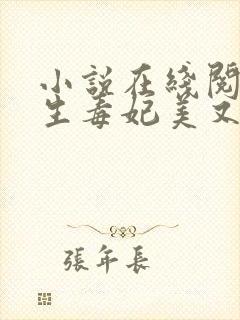 小說在綫閱
生毒妃美又
張年長